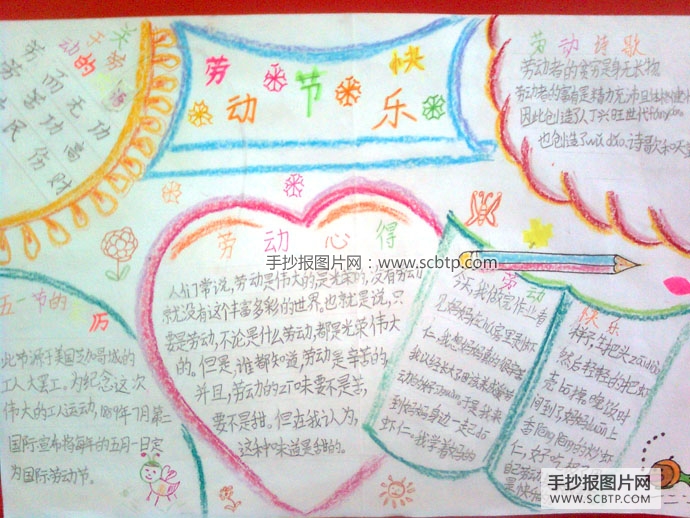 关
于劳
动的
劳而无功
劳苦功高
民伤财
劳动节快乐
劳动诗歌
劳动者的贫穷是身无长物
劳动者的富裕是精力充沛
因此创造了人丁兴旺世代
也创造了 诗歌和
手抄报图片网：www.scbtp.com
五一节的
历
此节源于美国芝加哥城的
工人大罢工。为纪念这次
伟大的工人运动，1889年7月第二
国际宣布将每年的五月一日定
为国际劳动节。
劳动心得
人们常说，劳动是伟大的是光荣的，没有劳动
就没有这个丰富多彩的世界。也就是说，只
要是劳动，不论是什么劳动，都是光荣伟大
的。但是，谁都知道，劳动是辛苦的，
并且，劳动的 味要不是苦，
要不是甜。但在我认为，
这种味道是甜的。
劳动
今天，我做完作业看
见妈妈在 家里
仁，我想妈妈真的很辛苦
我 长大了应该 做
动的 于是我来
到妈妈身边一起
虾仁。我学着妈妈
快乐
样子 把头
然后轻轻的把虾
去 。晚饭时
间到了 妈妈 上
香 的炒虾
仁，
手抄报图片网
WWW.SCBTP.COM